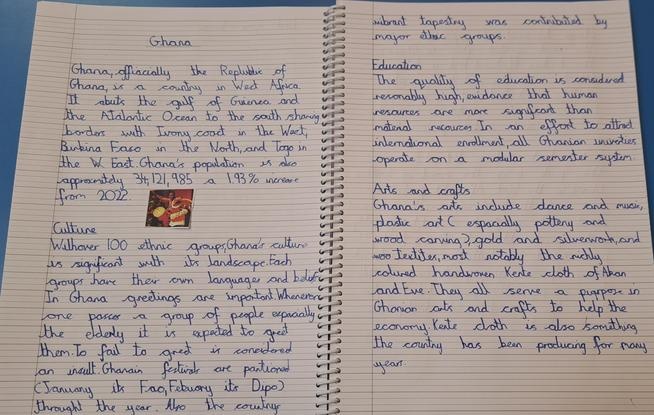 Ghana
Ghana, officially the Republic of
Ghana, is a country in West Africa.
It abuts the gulf of Guinea and
the Atalantic Ocean to the south sharing
borders with Ivory coast in the West,
Burkina Faso in the North, and Togo in
the W East. Ghana's population is also
approximately 34,121,985 a 1.93% increase
from 2022.
Culture
With over 100 ethnic groups, Ghana's culture
is significant with its landscape. Each
groups have their own languages and belief
In Ghana greetings are important. Whenever
one passes a group of people espacially
the elderly it is expected to greet
them. To fail to greet is considered
an insult. Ghanain festivals are
(January its Fao, Febuary its Dipo)
throught the year. Also the country
vibrant tapestry was contributed by
major ethnic groups.
Education
The quality of education is considered
resonably high, evidance that human
resources are more significant than
material resources. In an effort to attract
international enrollment, all Ghanian
operate on a modular semester system.
Arts and crafts
Ghana's arts include dance and music,
plastic art ( espacially pottery and
wood carving), gold and silverwork, and
textiles, most notably the richly
coloured handwoven Kente cloth of Akan
and Eve. They all serve a purpose in
Ghanian arts and crafts to help the
economy. Kente cloth is also something
the country has been producing for many
years.